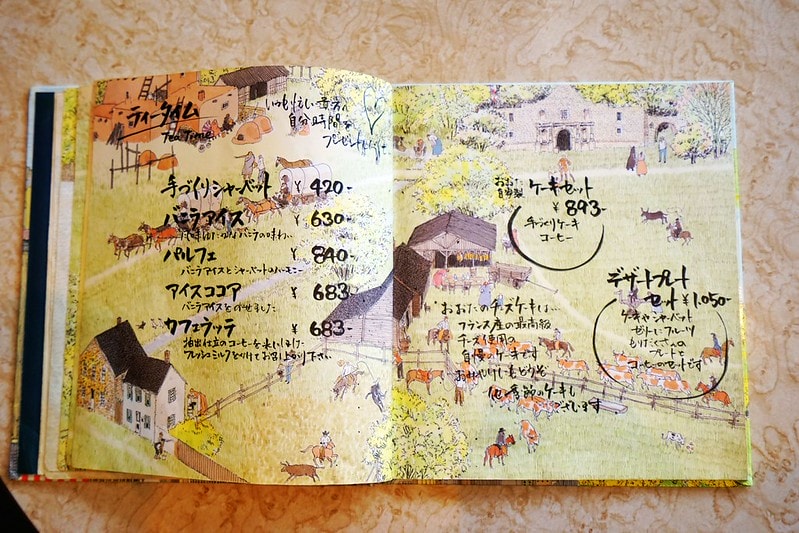 ティータイム
Tea Time
いつも忙しい貴方へ
自分時間を
プレゼント
手づくりシャーベット ¥420-
バニラアイス ¥630-
バニラの味わい
パルフェ ¥840-
バニラアイスとシャーベットのハーモニー
アイスココア ¥683-
バニラアイスをのせました
カフェラッテ ¥683-
抽出仕立のコーヒーを楽しみました
フレッシュミルクをかけてお召し上り下さい
おおた
自家製
ケーキセット
¥893-
手づくりケーキ
コーヒー
おおたのチーズケーキは…
フランス産の最高級
チーズ使用の
自慢のケーキです
おみやげにもどうぞ
他に季節のケーキも
ございます
デザートプレート
セット ¥1,050-
ケーキやシャーベット
ゼリー、フルーツ
もりだくさんの
プレートと
コーヒーのセットです